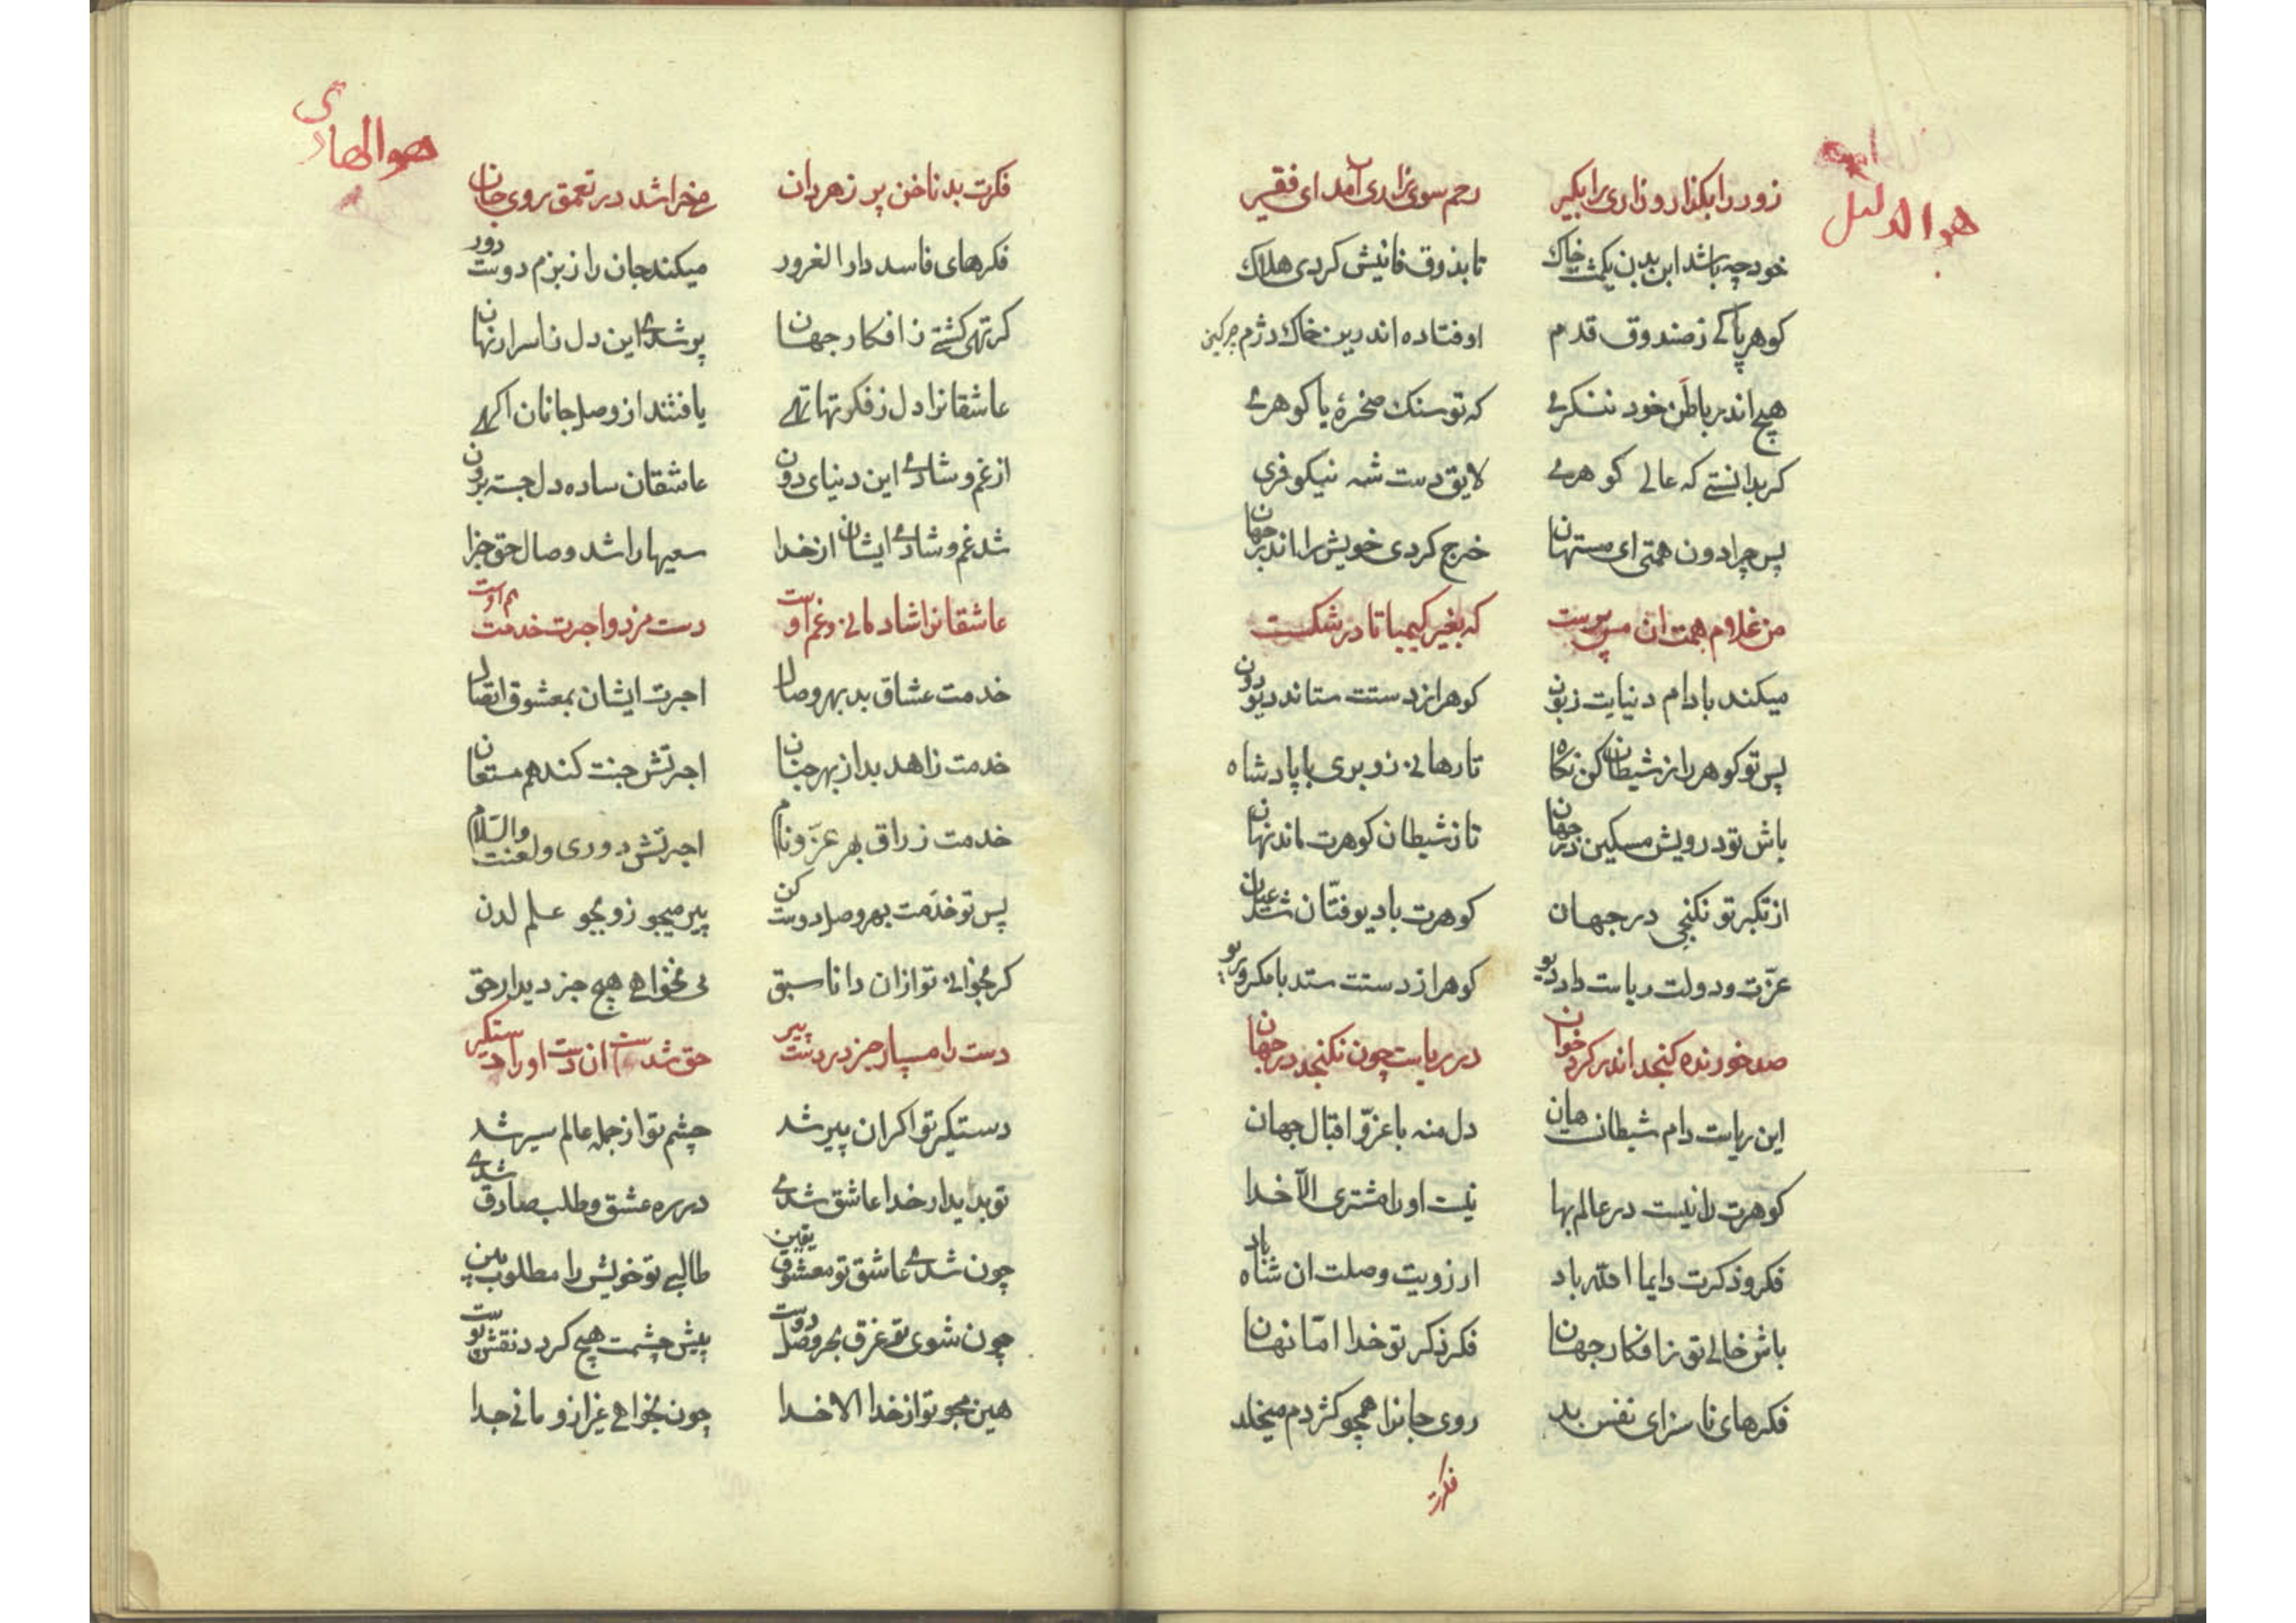 هو الدلیل
زور را بکذار و زاری را بکیر رحم سوی زاری آمد ای فقیر
خود چه باشد این بدن یکمشت خاک تا بذوق فانیش کردی هلاک
کوهر پاکے ز صندوق قدم اوفتاده اندرین خاک دژم چرکین
هیچ اندر باطن خود ننکرے که تو سنک صخرهٔ یا کوهرے
کر بدانستے که عالے کوهرے لایق دست شه نیکو فری
پس چرا دون همتی ای مستهان خرج کردی خویش را اندر جهان
من غلام همت ان مس پرست که بغیر کیمیا نا در شکست
میکند با دام دنیایت زبون کوهر از دستت ستاند دیو دون
پس تو کوهر را ز شیطان کن نکاه تا رهانی زو بری با پادشاه
باش تو درویش مسکین در جهان تا ز شیطان کوهرت ماند نهان
از تکبر تو نکنجی در جهان کوهرت با دیو فتّان شد عیان
عزّت و دولت ریاست داد دیو کوهر از دستت ستد با مکر و ریو
صد خورنده کنجد اندر کرد خوان در ریاست چون نکنجد در جهان
این ریاست دام شیطانست هان دل منه با عزّ و اقبال جهان
کوهرت را نیست در عالم بها نیست او را مشتری الّا خدا
فکر و ذکرت دایما الله باد ارزویت وصلت ان شاه باد
باش خالے تو ز افکار جهان فکر ذکر تو خدا امّا نهان
فکرهای ناسزای نفس بد روی جانرا همچو کژدم میخلد
فکرت
هو الهادی
فکرت بد ناخن پر زهر دان مے خراشد در تعمق روی جان
فکرهای فاسد دار الغرور میکند جان را ز بزم دوست دور
کر تهی کشتے ز افکار جهان پر شدے این دل ز اسرار نهان
عاشقانرا دل ز فکرتها تهے یافتند از وصل جانان اکهے
از غم و شادے این دنیای دون عاشقان ساده دل جسته برون
شد غم و شادے ایشان از خدا سعیها را شد وصال حق جزا
عاشقانرا شادمانی و غم اوست دست مزد و اجرت خدمت هم اوست
خدمت عشاق بد بهر وصال اجرت ایشان بمعشوق اتصال
خدمت زاهد بد از بهر جنان اجرتش جنت کند هم مستعان
خدمت زراق بهر عزّ و نام اجرتش دوری و لعنت والسّلام
پس تو خدمت بهر وصل دوست کن پیر میجو زو بجو علم لدن
کر بخوانی تو ازان دانا سبق مے نخواهے هیچ جز دیدار حق
دست را مسپار جز در دست پیر حق شدست ان دست او را دستکیر
دستکیر تو اکر ان پیر شد چشم تو از جمله عالم سیر شد
تو بدیدار خدا عاشق شدے در ره عشق و طلب صادق شدے
چون شدے عاشق تو معشوق یقین طالبے تو خویش را مطلوب بین
چون شوی تو غرق بحر وصل دوست پیش چشمت هیچ کردد نقش پوست
هین مجو تو از خدا الا خدا چون بخواهے غیر ازو مانے جدا